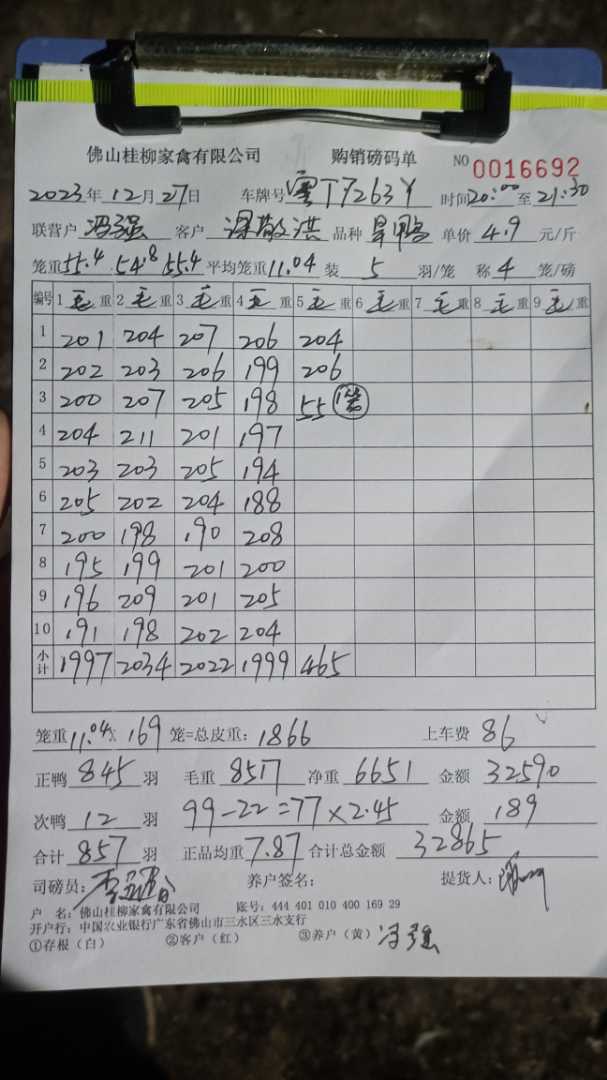 佛山桂柳家禽有限公司 购销磅码单 NO 0016692
2023年12月27日 车牌号 粤T7263Y 时间20:00至21:30
联营户 冯强 客户 品种 旱鸭 单价 4.9 元/斤
笼重55.4 54.8 55.4 平均笼重11.04 装 5 羽/笼 称 4 笼/磅
编号 1毛重 2毛重 3毛重 4毛重 5毛重 6毛重 7毛重 8毛重 9毛重
1 201 204 207 206 204
2 202 203 206 199 206
3 200 207 205 198 55
4 204 211 201 197
5 203 203 205 194
6 205 202 204 188
7 200 198 190 208
8 195 199 201 200
9 196 209 201 205
10 191 198 202 204
小计 1997 2034 2022 1999 465
笼重11.04X 169 笼=总皮重：1866 上车费 86
正鸭 845 羽 毛重 8517 净重 6651 金额 32590
次鸭 12 羽 99-22=77×2.45 金额 189
合计 857 羽 正品均重 7.87 合计总金额 32865
司磅员： 养户签名： 提货人：
户 名：佛山桂柳家禽有限公司 账号：444 401 010 400 169 29
开户行：中国农业银行广东省佛山市三水区三水支行
①存根（白） ②客户（红） ③养户（黄） 冯强